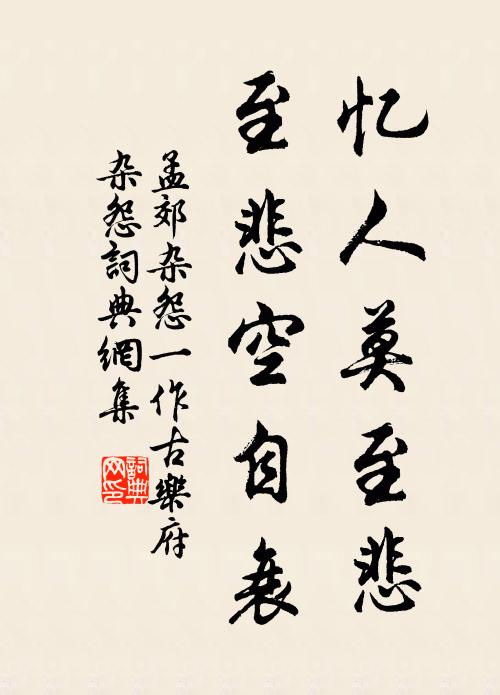 忆人莫至悲
至悲空自衰
孟郊杂怨一作古樂府
杂怨詞典網集
詞典
网印